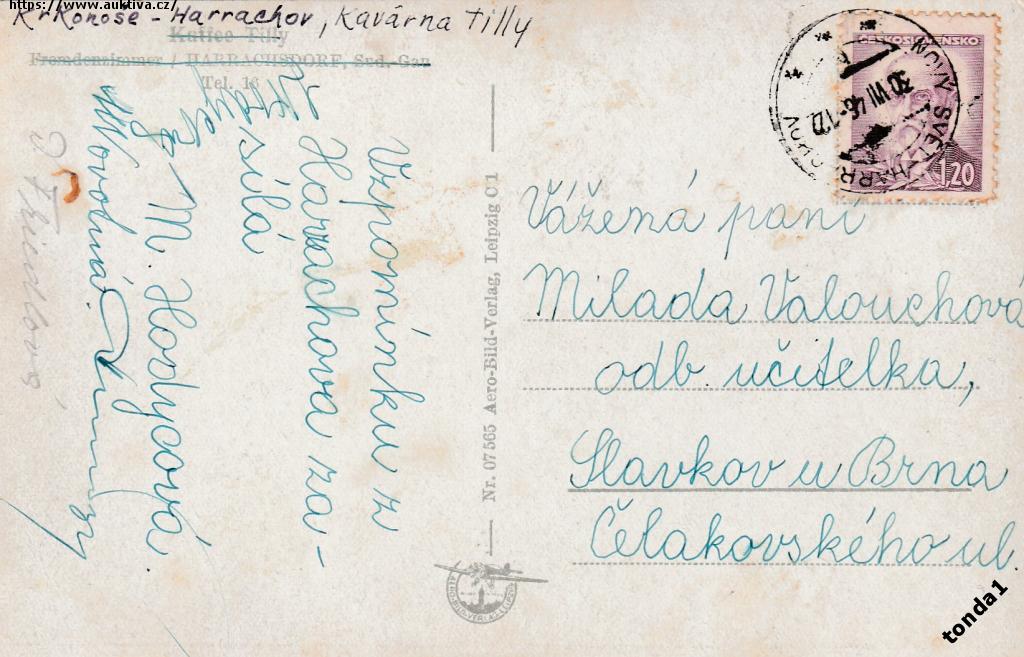 https://www.auktiva.cz/
Krkonoše - Harrachov, Kavárna Tilly
Kaffee Tilly
Fremdenzimmer / HARRACHSDORF, Sud.-Gau
Tel. 16
Vzpomínku z
Harrachova za-
sílá
M. Hordycová
Novotná
Nr. 07565 Aero-Bild-Verlag, Leipzig C1
AERO-BILD-VERLAG LEIPZIG
ČESKOSLOVENSKO
1,20
NOVÝ SVĚT-HARRACHOV
30.VII.46-12
Vážená paní
Milada Valouchová
odb. učitelka,
Slavkov u Brna
Čelakovského ul.
tonda1